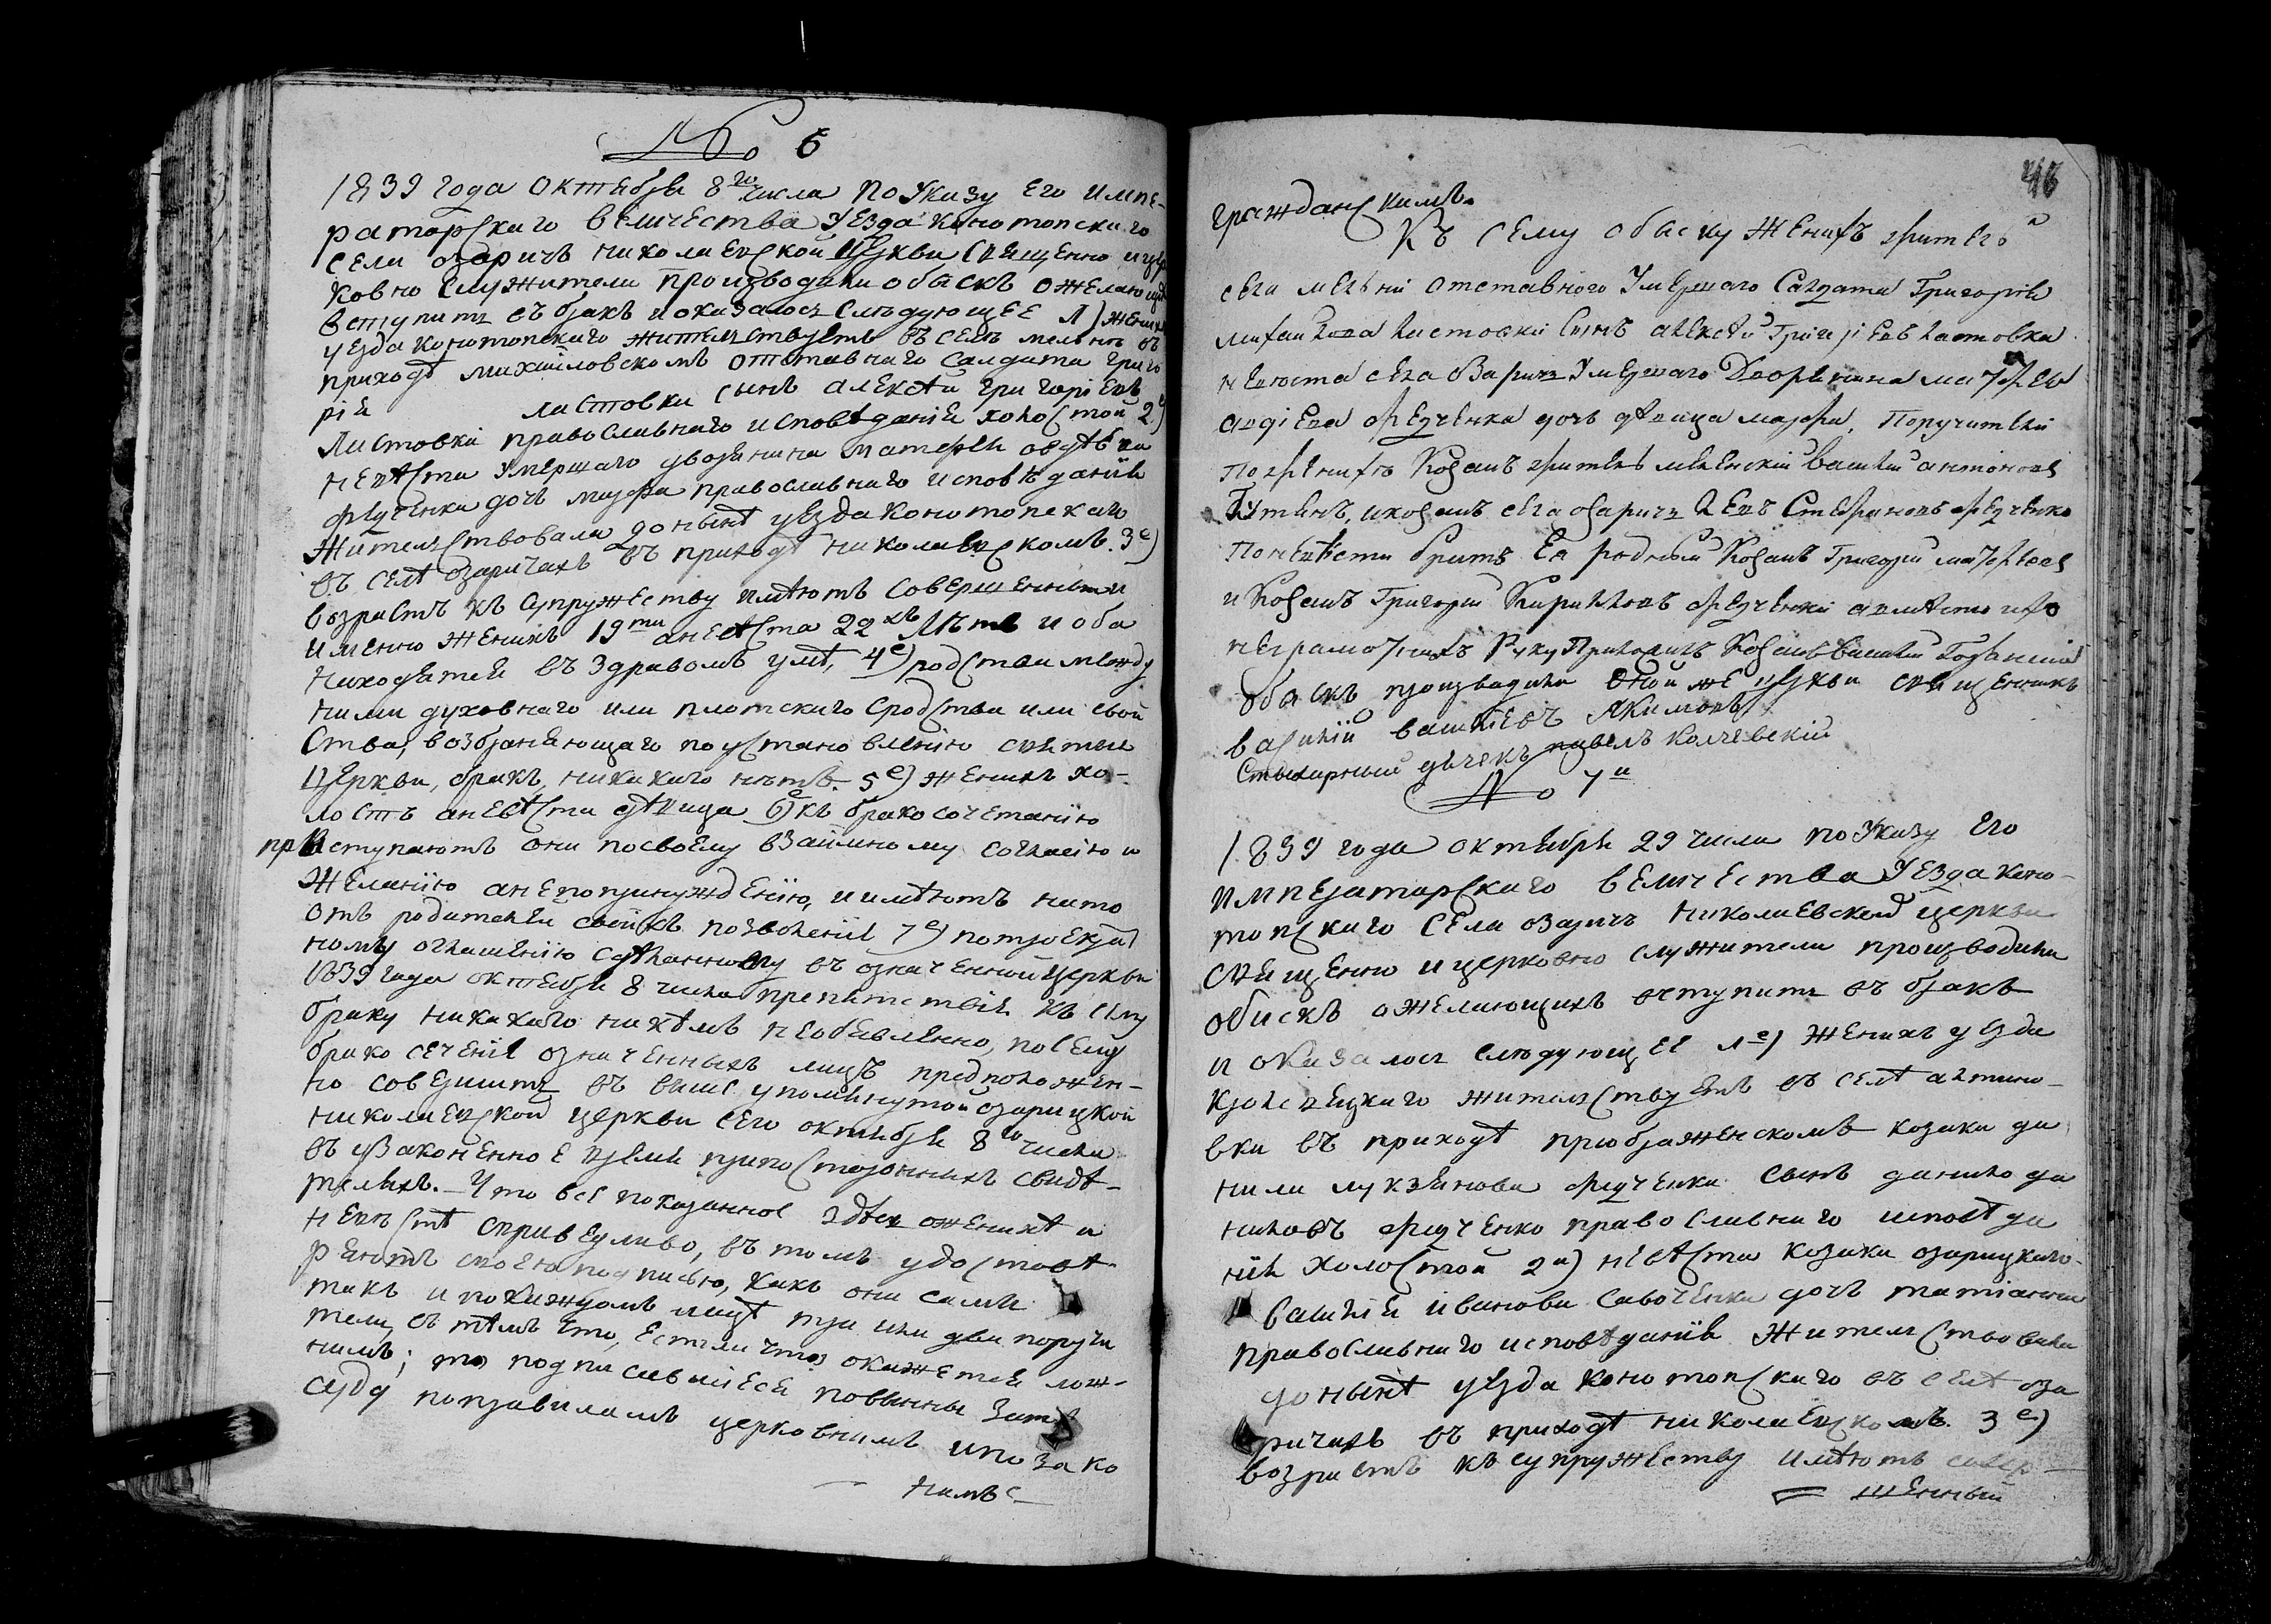 № 6
1839 года Октября 8го числа По Указу Его Импе-
раторскаго Величества Уезда Конотопскаго
Села Озаричъ Николаевской Церкви Священно и цер
ковно Служители производили обыскъ о желающихъ
вступить въ бракъ и оказалось Слѣдующее 1) женихъ
уезда конотопскаго жительствуетъ въ селѣ мельнѣ въ
приходѣ михайловскомъ отставнаго салдата григо
рія листовки сынъ алексѣй григоріевъ
Листовка православнаго исповѣданія холостой 2)
невѣста умершаго дворянина матфея авдѣева
федченка дочь марфа православнаго исповѣданія
Жительствовала доныне уезда конотопскаго
въ селѣ озаричахъ въ приходѣ николаевскомъ. 3е)
возрастъ къ супружеству имѣютъ совершенный и
именно женихъ 19ти а невѣста 22хъ Лѣтъ и оба
находятся въ здравомъ умѣ, 4е) родства между
ними духовнаго или плотскаго сродства или свой
ства, возбраняющаго по установленію святыя
Церкви, бракъ, никакаго нѣтъ. 5е) женихъ хо-
лостъ а невѣста дѣвица 6) къ бракосочетанію
приступаютъ они по своему взаимному согласію и
Желанію а не по принужденію, и имѣютъ на то
отъ родителей своихъ позволеніе 7е) по троекрат
ному оглашенію сдѣланному въ означенной церкви
1839 года октября 8 числа препятствія къ сему
браку никакого никѣмъ необявленно, посему
брако сеченіе означенныхъ лицъ предположен-
но совершить въ выше упомянутой озарицкой
николаевской церкви сего октября 8го числа
въ узаконенное время при постороннихъ свидѣ-
теляхъ. – Что все показанное здѣсь о женихѣ и
невѣстѣ справедливо, въ томъ удостовѣ-
ряютъ своею подписью, какъ они сами
такъ и по каждомъ лицѣ три или два поручи
тели, съ тѣмъ что, естли что окажется лож-
нымъ; то подписавшіеся повинны за то
суду по правиламъ церковнимъ и по зако
намъ
46
гражданскимъ.
Къ сему обыску женихъ житель
села мельни отставного Умершаго Салдата Григорія
михайлова листовки Сынъ алексѣй Григоріевъ листовка
невѣста села Озаричъ Умершаго Дворянина матфея
авдіева федченка дочь дѣвица марфа, Поручители
по женихѣ Козакъ житель меленскій василій антоновъ
и козакъ села озаричъ Левъ Стефановъ федченко
По невѣсти братъ Ея родный Козакъ Григорій матфеевъ
и Козакъ Григорій Кириловъ федченки а вмѣсто ихъ
неграмотнихъ Руку Приложилъ Козакъ василій
Обыскъ производили оной же церкви священникъ
василій василіевъ Якимовъ
Стихарный дячекъ павелъ Колчевскій
№ 7й
1839 года октября 29 числа по Указу Его
Императорскаго величества Уезда Коно-
топскаго Села озаричъ Николаевской церкви
священно и церковно служители производили
обискъ о желающихъ вступить въ бракъ
и оказалось слѣдующее 1е) женихъ уезда
кролевецкаго жительствуетъ въ селѣ алтино-
вки въ приходѣ преображенскомъ козака да
нила лукянова федченка Сынъ данило да
ниловъ федченко православнаго исповѣда
нія холостой 2я) невѣста козака озарицкаго
василія иванова савоченка дочь татіанна
православнаго исповѣданія жительствовала
донынѣ уезда конотопскаго въ селѣ оза
ричахъ въ приходѣ николаевскомъ. 3е)
возрастъ къ супружеству имѣютъ совер-
шенный